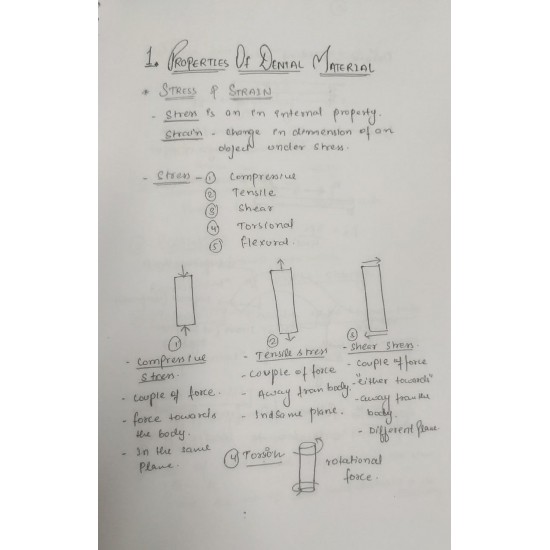 1. PROPERTIES OF DENTAL MATERIAL
* STRESS & STRAIN
- Stress is an in internal property.
Strain - change in dimension of an
object under stress.
- Stress - ① Compressive
② Tensile
③ Shear
④ Torsional
⑤ flexural
①
- Compressive
Stress.
- Couple of force.
- force towards
the body.
- In the same
plane.
②
- Tensile stress
- Couple of force
- Away from body.
- In same plane.
③
- Shear stress.
- Couple of force
- "either towards"
- away from the
body.
- Different plane
④ Torsion
rotational
force.